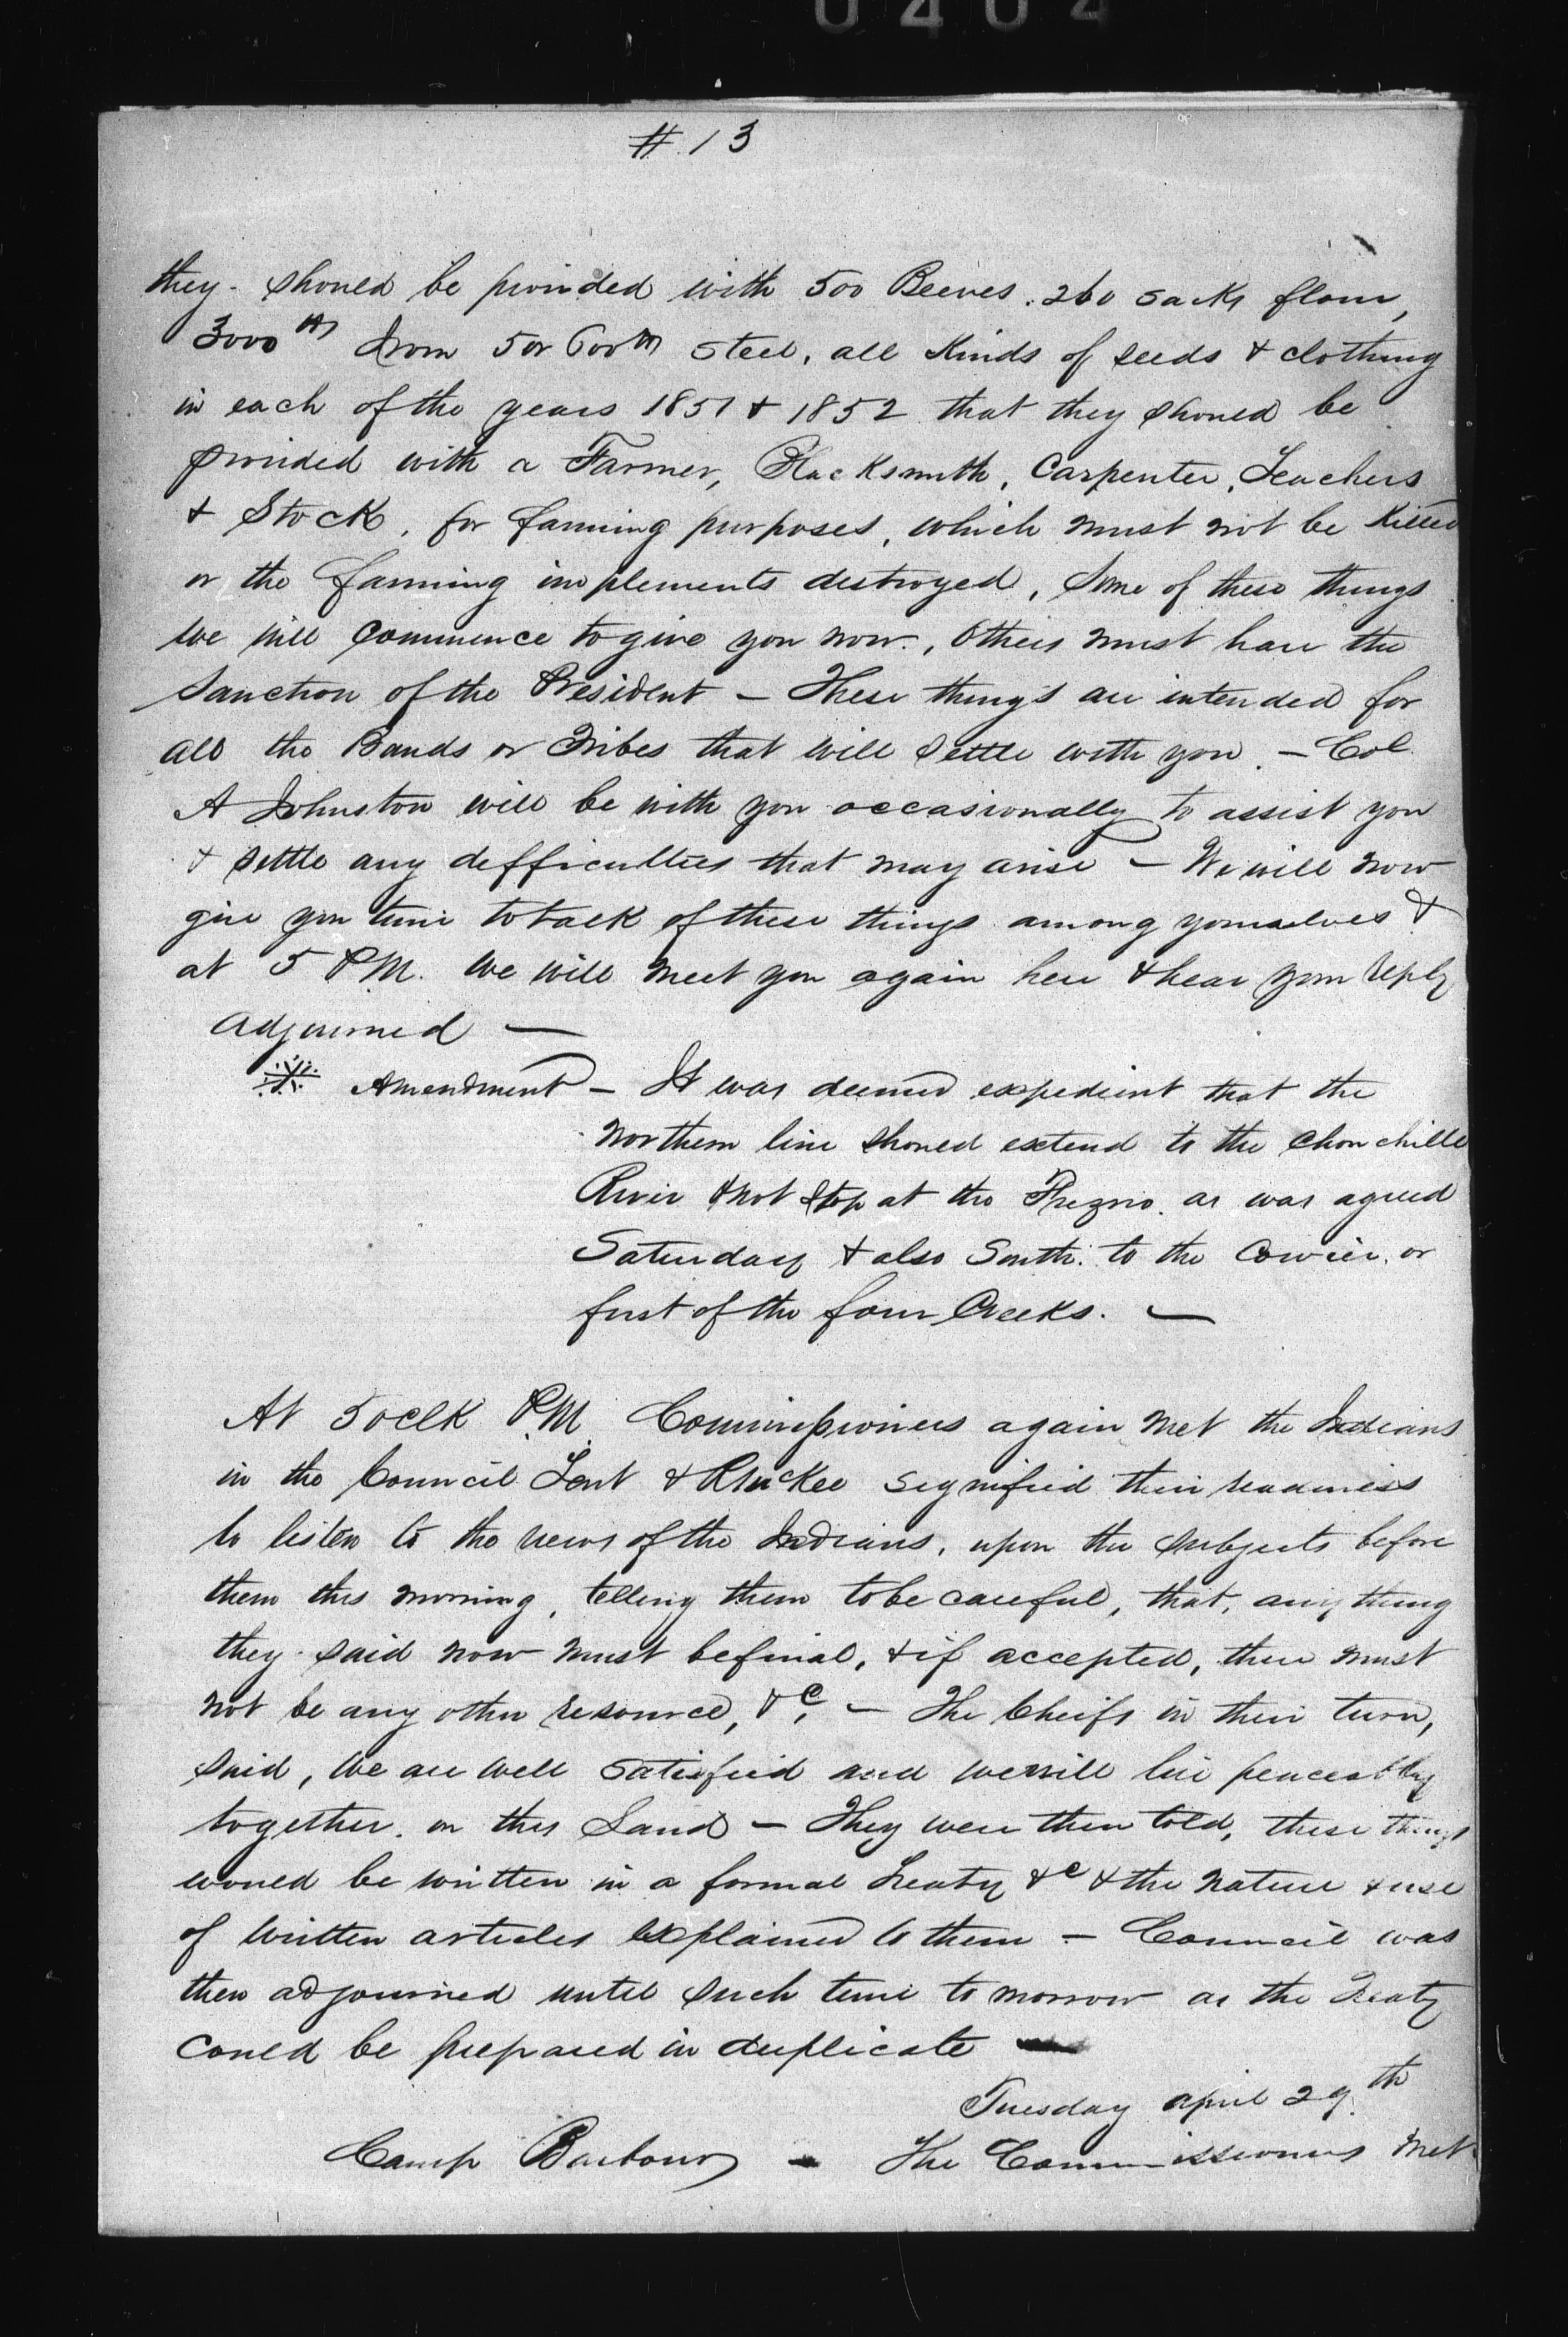 0404
# 13
they should be provided with 500 Beeves. 260 sacks flour,
3000 lbs Iron 5 or 600 lbs Steel, all Kinds of seeds & clothing
in each of the years 1851 & 1852 that they should be
provided with a Farmer, Blacksmith, Carpenter, Teachers
& Stock, for farming purposes, which must not be Killed
or the farming implements destroyed, Some of these things
we will commence to give you now, others must have the
Sanction of the President — These things are intended for
all the Bands or Tribes that will settle with you. — Col
A Johnston will be with you occasionally to assist you
& settle any defficulties that may arise — We will now
give you time to talk of these things among yourselves &
at 5 PM. we will meet you again here & hear your reply
Adjourned —
Amendment — It was deemed expedient that the
Northern line should extend to the Chouchille
River & not stop at the Frezno as was agreed
Saturday & also South to the Cowier, or
first of the four Creeks. —
At 5 oclk PM Commissioners again met the Indians
in the Council Tent & RMcKee signified their readiness
to listen to the views of the Indians, upon the subjects before
them this morning, telling them to be careful, that, any thing
they said now must be final, & if accepted, there must
not be any other resource, &c. — The Cheifs in their turn,
said, we are well satisfied and we will live peaceably
together on this Land — They were then told, these things
would be written in a formal Treaty &c & the nature & use
of written articles explained to them — Council was
then adjourned until such time to morrow as the Treaty
could be prepared in duplicate
Tuesday april 29th
Camp Barbour — The Commissioners Met